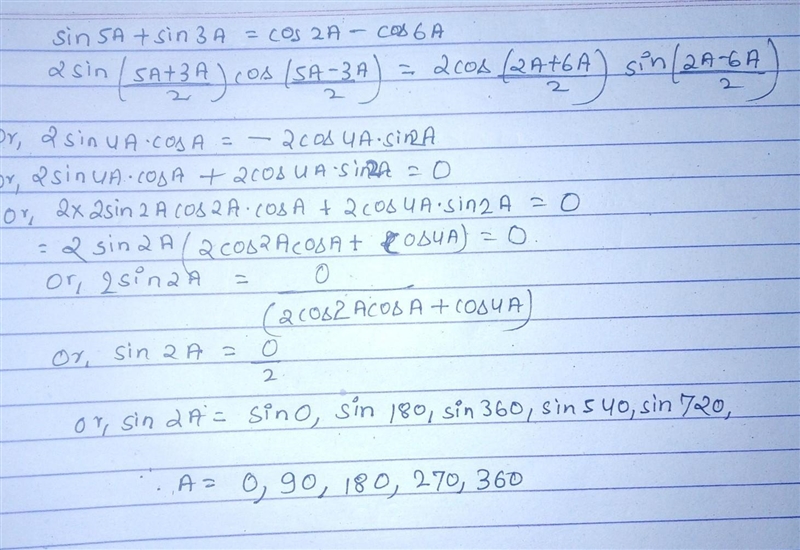 sin5A + sin3A = cos2A - cos6A
2sin (5A+3A/2) cos (5A-3A/2) = 2cos (2A+6A/2) sin (2A-6A/2)
Or, 2sin4A·cosA = - 2cos4A·sin2A
or, 2sin4A·cosA + 2cos4A·sin2A = 0
Or, 2×2sin2Acos2A·cosA + 2cos4A·sin2A = 0
= 2sin2A (2cos2AcosA + cos4A) = 0.
Or, 2sin2A = 0/(2cos2AcosA + cos4A)
Or, sin2A = 0/2
or, sin2A = sin0, sin180, sin360, sin540, sin720,
∴ A = 0, 90, 180, 270, 360